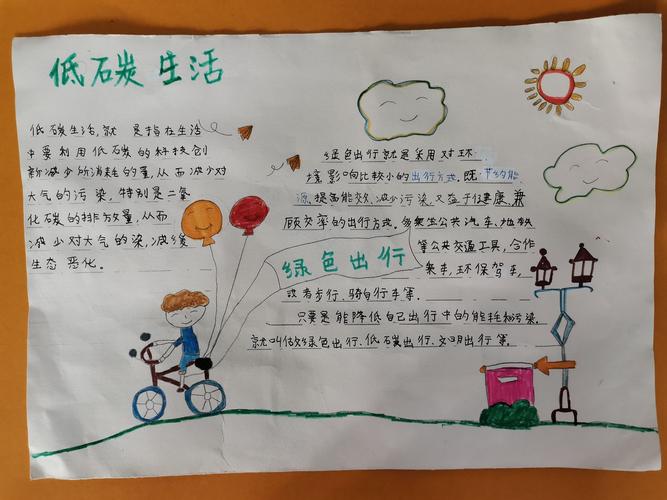 低碳生活
低碳生活，就是指在生活
中要利用低碳的科技创
新减少所消耗的量，从而减少对
大气的污染，特别是二氧
化碳的排放量，从而
减少对大气的染，减缓
生态恶化。
绿色出行就是采用对环
境影响比较小的出行方式。既节约能
源、提高能效、减少污染、又益于健康、兼
顾效率的出行方式。多乘坐公共汽车、地铁
等公共交通工具，合作
乘车，环保驾车，
或者步行、骑自行车等。
只要是能降低自己出行中的能耗和污染。
就叫做绿色出行、低碳出行、文明出行等。
绿色出行